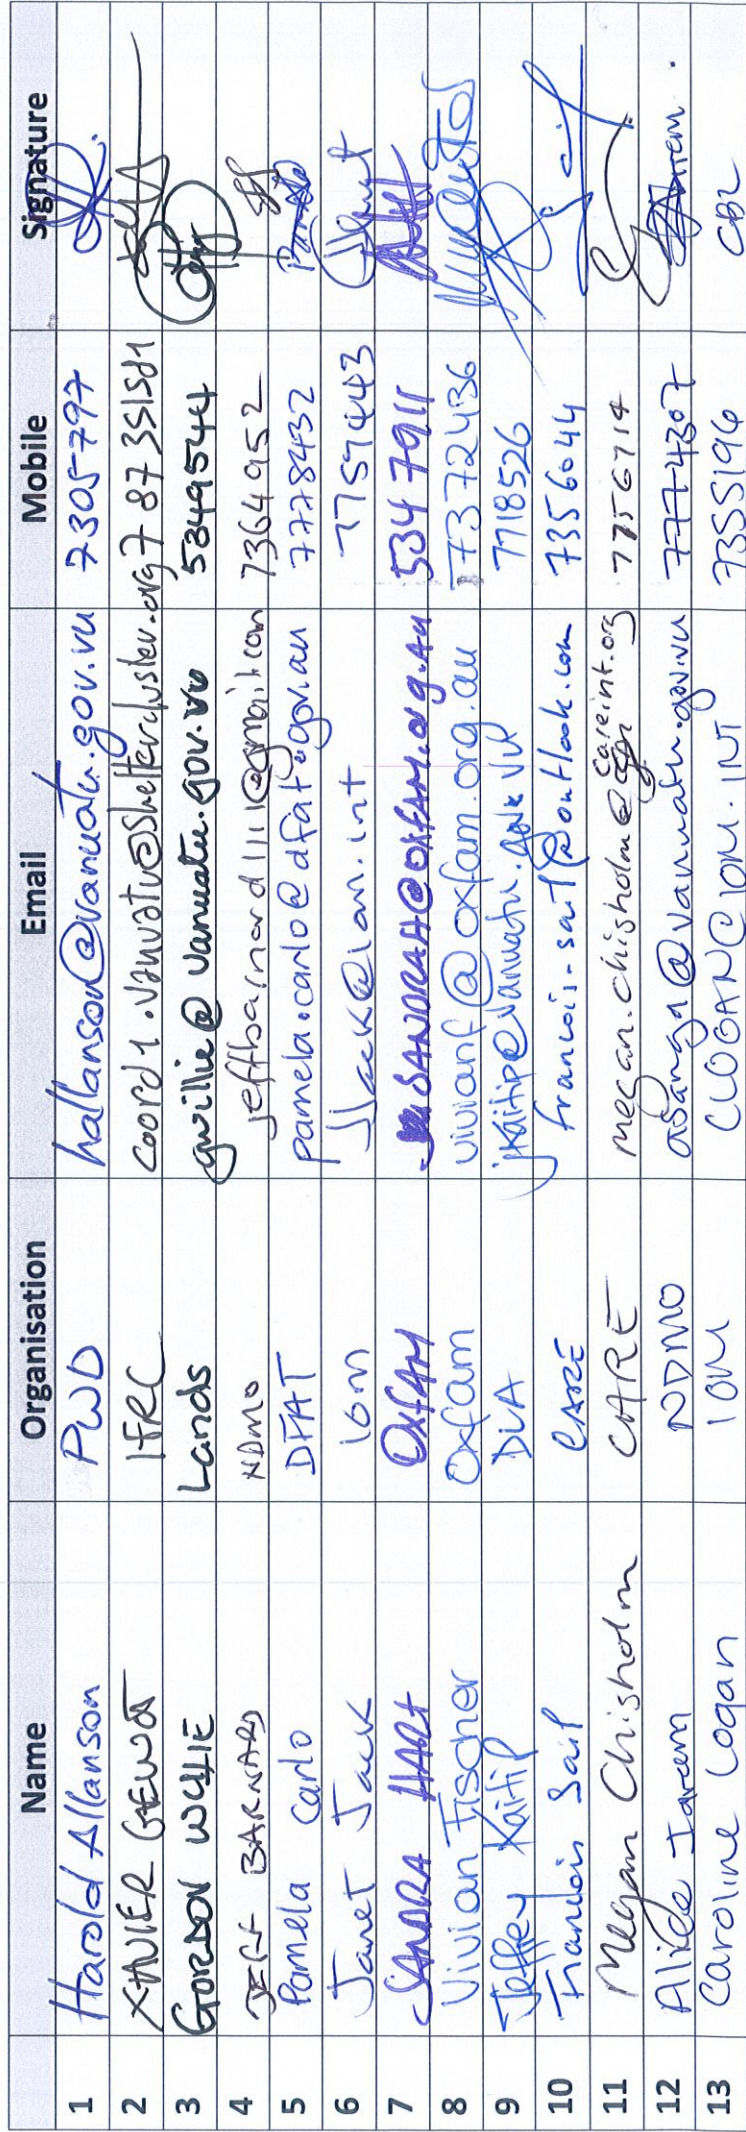 Name Organisation Email Mobile Signature
1 Harold Allanson PWD hallanson@vanuatu.gov.vu 7305797
2 XAVIER GENOT IFRC coord1.vanuatu@sheltercluster.org 787351581
3 GORDON WILLIE Lands gwillie@vanuatu.gov.vu 5349544
4 JEFF BARNARD NDMO jeffbarnard111@gmail.com 7364952
5 Pamela Carlo DFAT pamela.carlo@dfat.gov.au 7778432
6 Janet Jack iom jjack@iom.int 7757443
7 SANDRA HART OXFAM SANDRAH@OXFAM.org.AU 5347911
8 Vivian Fischer Oxfam vivianf@oxfam.org.au 7372436
9 Jeffrey Kaitip DLA jkaitip@vanuatu.gov.vu 7718526
10 Francois Sail CARE francois-sail@outlook.com 7356044
11 Megan Chisholm CARE megan.chisholm@careint.org 7756714
12 Alice Iarem NDMO @vanuatu.gov.vu 7774307
13 Caroline Logan IOM CLOGAN@IOM.INT 7355196 CBL